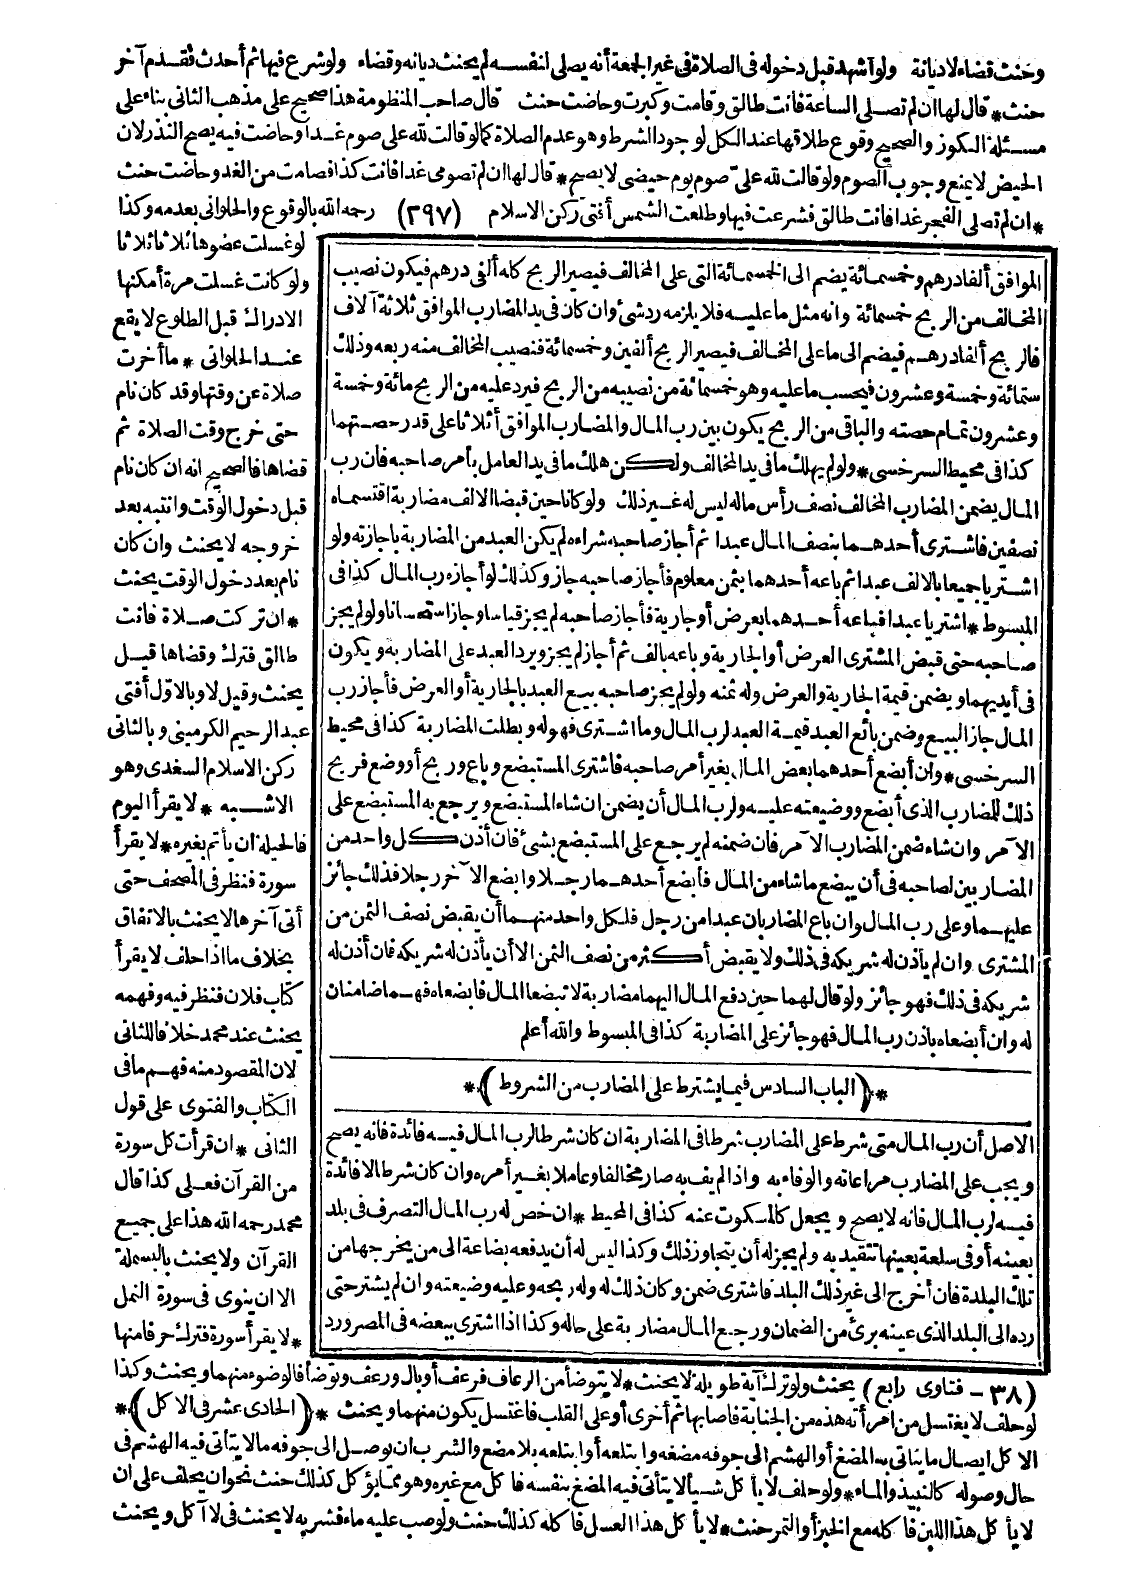 وحنث قضاء لا ديانة ولو أشهد قبل دخوله فى الصلاة فى غير الجمعة أنه يصلى لنفسه لم يحنث ديانة وقضاء ولو شرع فيها ثم أحدث فقدم آخر
حنث * قال لها ان لم تصلى الساعة فانت طالق وقامت وكبرت وحاضت حنث قال صاحب المنظومة هذا صحيح على مذهب الثانى بناء على
مسئلة الكوز والصحيح وقوع طلاقها عند الكل لوجود الشرط وهو عدم الصلاة كما لو قالت لله على صوم غد او حاضت فيه يصح النذر لان
الحيض لا يمنع وجوب الصوم ولو قالت لله علىّ صوم يوم حيضى لا يصح * قال لها ان لم تصومى غدا فانت كذا فصامت من الغد وحاضت حنث
* ان لم تصلى الفجر غدا فانت طالق فشرعت فيها وطلعت الشمس أفتى ركن الاسلام (٢٩٧) رحمه الله بالوقوع والحلوانى بعدمه وكذا
لو غسلت عضوها ثلاثا ثلاثا
ولو كانت غسلت مرة أمكنها
الادراك قبل الطلوع لا يقع
عند الحلوانى * ما أخرت
صلاة عن وقتها وقد كان نام
حتى خرج وقت الصلاة ثم
قضاها فالصحيح انه ان كان نام
قبل دخول الوقت وانتبه بعد
خروجه لا يحنث وان كان
نام بعد دخول الوقت يحنث
* ان تركت صلاة فانت
طالق فترك وقضاها قيل
يحنث وقيل لا وبالاوّل أفتى
عبد الرحيم الكرمينى وبالثانى
ركن الاسلام السغدى وهو
الاشبه * لا يقرأ اليوم
فالحيلة ان يأتم بغيره * لا يقرأ
سورة فنظر فى المصحف حتى
أتى آخرها لا يحنث بالاتفاق
بخلاف ما اذا حلف لا يقرأ
كتاب فلان فنظر فيه وفهمه
يحنث عند محمد خلافا للثانى
لان المقصود منه فهم ما فى
الكتاب والفتوى على قول
الثانى * ان قرأت كل سورة
من القرآن فعلى كذا قال
محمد رحمه الله هذا على جميع
القرآن ولا يحنث بالبسملة
الا ان ينوى فى سورة النمل
* لا يقرأ سورة فترك حرفا منها
الموافق ألفا درهم وخمسمائة يضم الى الخمسمائة التى على المخالف فيصير الربح كله ألفى درهم فيكون نصيب
المخالف من الربح خمسمائة وانه مثل ما عليه فلا يلزمه رد شئ وان كان فى يد المضارب الموافق ثلاثة آلاف
فالربح ألفا درهم فيضم الى ما على المخالف فيصير الربح ألفين وخمسمائة فنصيب المخالف منه ربعه وذلك
ستمائة وخمسة وعشرون فيحسب ما عليه وهو خمسمائة من نصيبه من الربح فيرد عليه من الربح مائة وخمسة
وعشرون تمام حصته والباقى من الربح يكون بين رب المال والمضارب الموافق أثلاثا على قدر حصتهما
كذا فى محيط السرخسى * ولو لم يهلك ما فى يد المخالف ولكن هلك ما فى يد العامل بأمر صاحبه فان رب
المال يضمن المضارب المخالف نصف رأس ماله ليس له غير ذلك ولو كانا حين قبضا الالف مضاربة اقتسماه
نصفين فاشترى أحدهما بنصف المال عبدا ثم أجاز صاحبه شراءه لم يكن العبد من المضاربة باجازته ولو
اشتريا جميعا بالالف عبدا ثم باعه أحدهما بثمن معلوم فأجاز صاحبه جاز وكذلك لو أجازه رب المال كذا فى
المبسوط * اشتريا عبدا فباعه أحدهما بعرض أو جارية فأجاز صاحبه لم يجز قياسا وجاز استحسانا ولو لم يجز
صاحبه حتى قبض المشترى العرض أو الجارية وباعه بالف ثم أجاز لم يجز ويرد العبد على المضاربة ويكون
فى أيديهما ويضمن قيمة الجارية والعرض وله ثمنه ولو لم يجز صاحبه بيع العبد بالجارية أو العرض فأجاز رب
المال جاز البيع وضمن بائع العبد قيمة العبد لرب المال وما اشترى فهو له وبطلت المضاربة كذا فى محيط
السرخسى * وان أبضع أحدهما بعض المال بغير أمر صاحبه فاشترى المستبضع وباع وربح أو وضع فربح
ذلك للمضارب الذى أبضع ووضيعته عليه ولرب المال أن يضمن ان شاء المستبضع ويرجع به المستبضع على
الآمر وان شاء ضمن المضارب الآمر فان ضمنه لم يرجع على المستبضع بشئ فان أذن كل واحد من
المضاربين لصاحبه فى أن يبضع ما شاء من المال فأبضع أحدهما رجلا وابضع الآخر رجلا فذلك جائز
عليهما وعلى رب المال وان باع المضاربان عبدا من رجل فلكل واحد منهما أن يقبض نصف الثمن من
المشترى وان لم يأذن له شريكه فى ذلك ولا يقبض أكثر من نصف الثمن الا أن يأذن له شريكه فان أذن له
شريكه فى ذلك فهو جائز ولو قال لهما حين دفع المال اليهما مضاربة لا تبضعا المال فابضعاه فهما ضامنان
له وان أبضعاه باذن رب المال فهو جائز على المضاربة كذا فى المبسوط والله أعلم
* (الباب السادس فيما يشترط على المضارب من الشروط) *
الاصل أن رب المال متى شرط على المضارب شرطا فى المضاربة ان كان شرطا لرب المال فيه فائدة فانه يصح
ويجب على المضارب مراعاته والوفاء به واذا لم يف به صار مخالفا وعاملا بغير أمره وان كان شرطا لا فائدة
فيه لرب المال فانه لا يصح ويجعل كالمسكوت عنه كذا فى المحيط * ان خص له رب المال التصرف فى بلد
بعينه أو فى سلعة بعينها تتقيد به ولم يجز له أن يتجاوز ذلك وكذا ليس له أن يدفعه بضاعة الى من يخرجها من
تلك البلدة فان أخرج الى غير ذلك البلد فاشترى ضمن وكان ذلك له وله ربحه وعليه وضيعته وان لم يشتر حتى
رده الى البلد الذى عينه برئ من الضمان ورجع المال مضاربة على حاله وكذا اذا اشترى ببعضه فى المصر ورد
(٣٨ - فتاوى رابع) يحنث ولو ترك آية طويلة لا يحنث * لا يتوضأ من الرعاف فرعف أو بال ورعف وتوضأ فالوضوء منهما ويحنث وكذا
لو حلف لا يغتسل من امرأته هذه من الجنابة فاصابها ثم أخرى أو على القلب فاغتسل يكون منهما ويحنث * (الحادى عشر فى الاكل) *
الاكل ايصال ما يتاتى به المضغ أو الهشم الى جوفه مضغه وابتلعه أو ابتلعه بلا مضغ والشرب ان يوصل الى جوفه ما لا يتاتى فيه الهشم فى
حال وصوله كالنبيذ والماء * ولو حلف لا يأكل شيأ لا يتأتى فيه المضغ بنفسه فاكل مع غيره وهو مما يؤكل كذلك حنث نحو ان يحلف على ان
لا يأكل هذا اللبن فاكله مع الخبز أو التمر حنث * لا يأكل هذا العسل فاكله كذلك حنث ولو صب عليه ماء فشربه لا يحنث فى لا آكل ويحنث